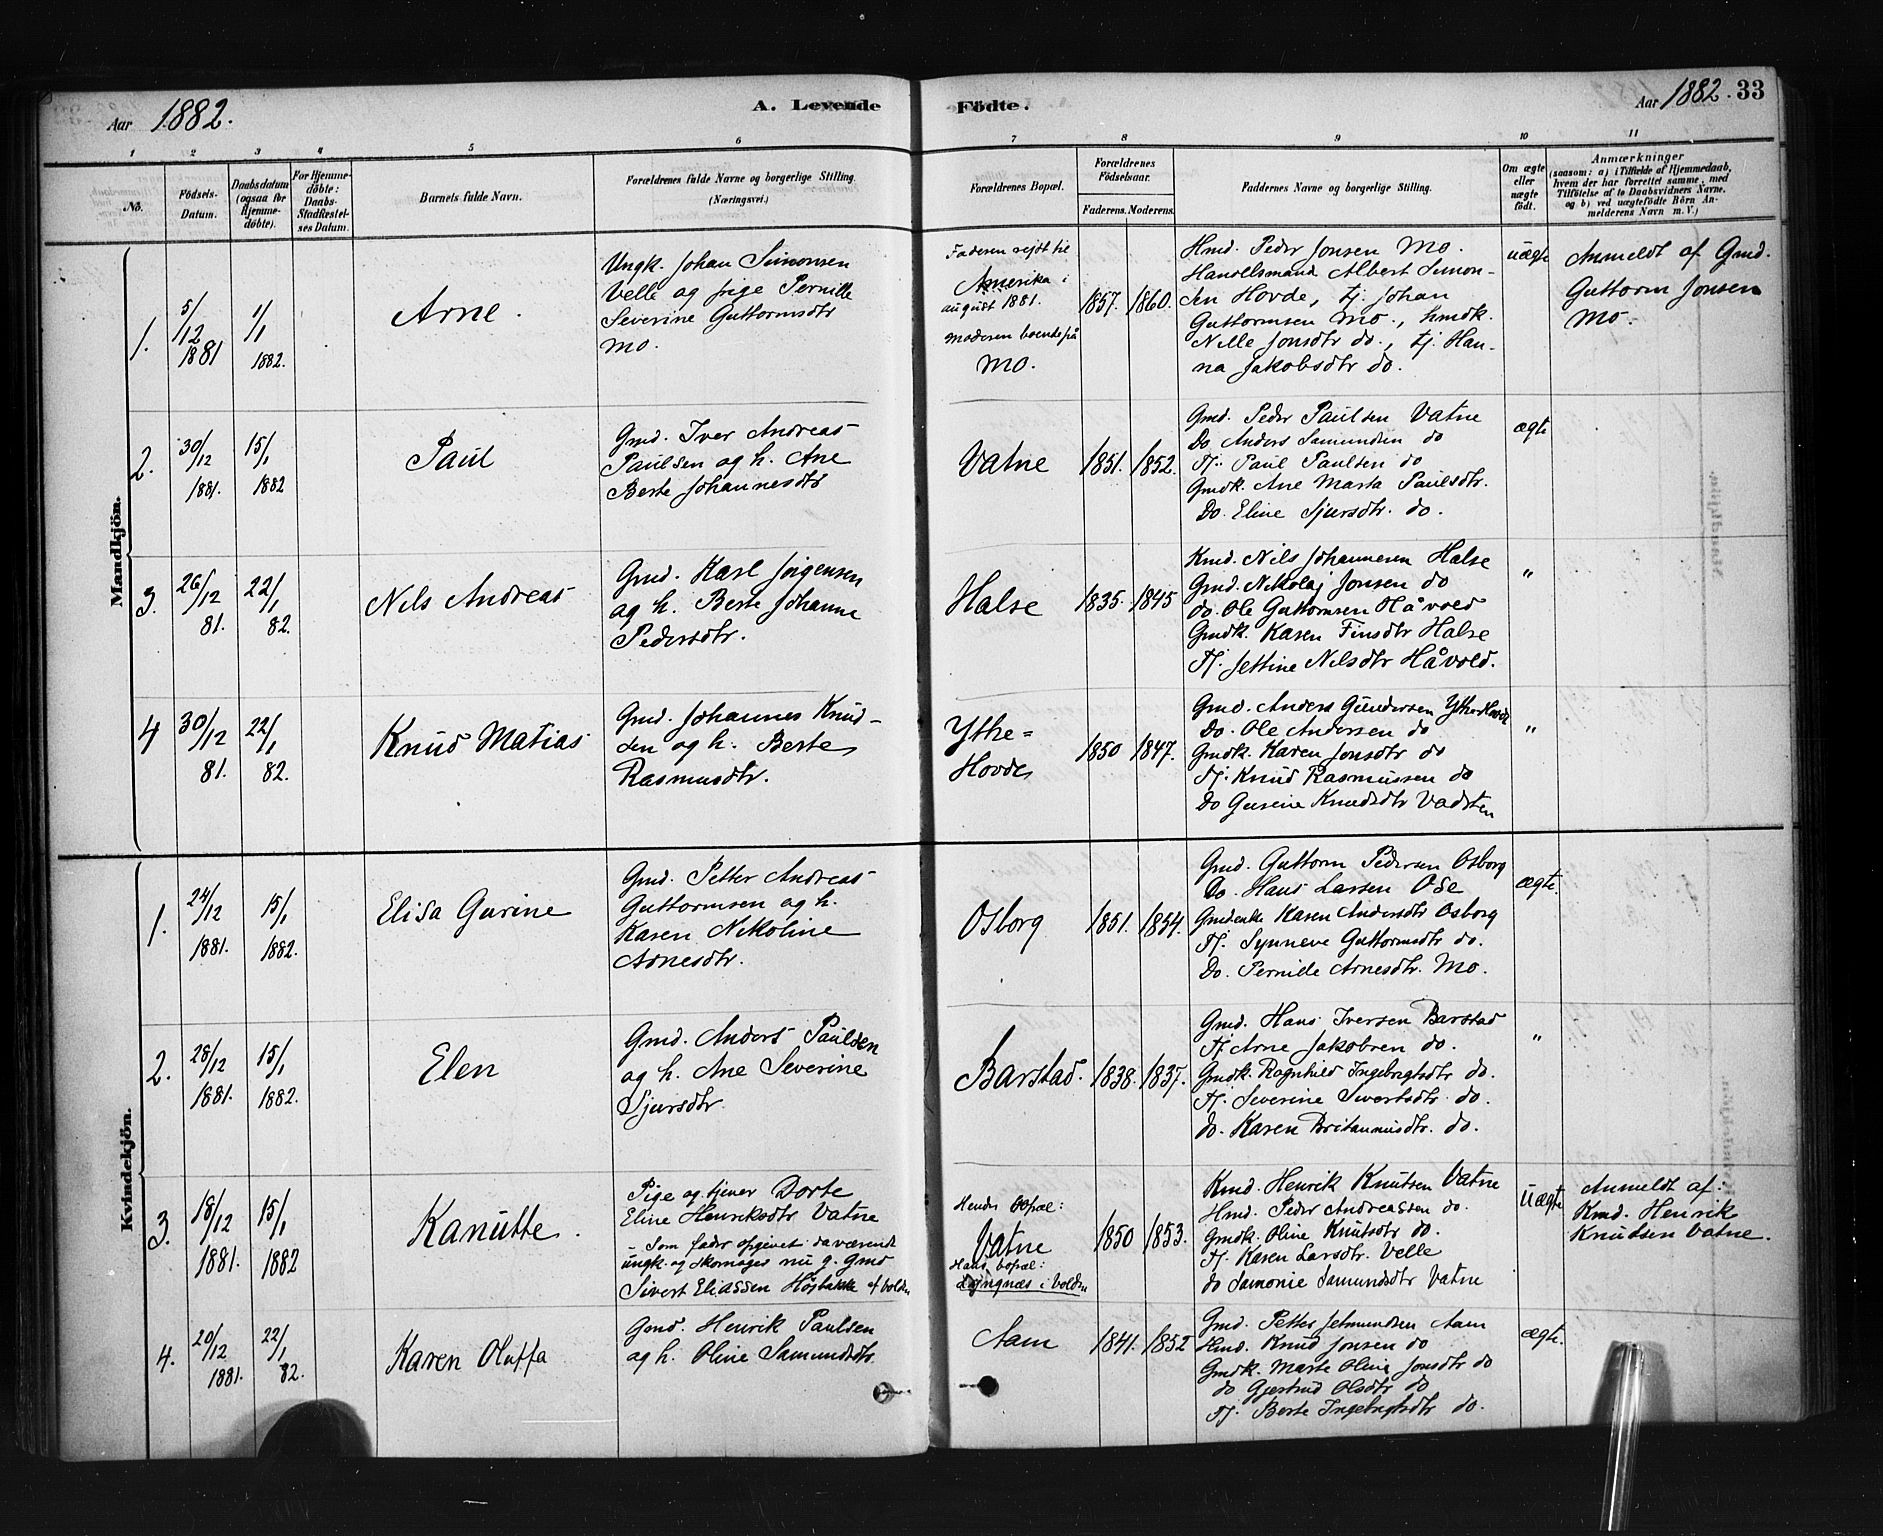 Aar 1882.
A. Levende Födte.
Aar 1882. 33
1 2 3 4 5 6 7 8 9 10 11
No.
Födsels-Datum.
Daabsdatum (ogsaa for Hjemme-döbte).
For Hjemme-döbte: Daabs-Stadfæstel-ses Datum.
Barnets fulde Navn.
Forældrenes fulde Navne og borgerlige Stilling. (Næringsvei.)
Forældrenes Bopæl.
Forældrenes Födselsaar.
Faderens. Moderens.
Faddernes Navne og borgerlige Stilling.
Om ægte eller uægte født.
Anmærkninger
(saasom: a) i Tilfælde af Hjemmedaab,
hvem der har forrettet samme, med
Tilføielse af to Daabsvidners Navne,
og b) ved uægtefödte Börn An-
melderens Navn m. V.)
Mandkjön.
1.
5/12 1881
1/1 1882.
Arne.
Ungk. Johan Simonsen
Velle og pige Pernille
Severine Guttormsdtr
Mo.
Faderen rejst til
Amerika i
august 1881.
Moderen boende på
Mo.
1857. 1860.
Hmd. Peder Jonsen Mo.
Handelsmand Albert Simon-
sen Hovde, tj. Johan
Guttormsen Mo., hmdk.
Nille Jonsdtr do., tj. Han-
na Jakobsdtr do.
uægte
Anmeldt af Gmd.
Guttorm Jonsen
Mo.
2.
30/12 1881.
15/1 1882
Paul
Gmd. Iver Andreas
Paulsen og h. Ane
Berte Johannesdtr
Vatne
1851. 1852.
Gmd. Peder Paulsen Vatne
Do Anders Samundsen do
Tj. Paul Paulsen do
Gmdk. Ane Marta Paulsdtr.
Do. Eline Sjursdtr. do.
ægte
3.
26/12 81.
22/1 82.
Nils Andreas
Gmd. Karl Jörgensen
og h. Berte Johanne
Pedersdtr.
Halse
1835. 1845
Kmd. Nils Johannesen Halse
Gmd. Nikolaj Jonsen do
do. Ole Guttormsen Håvold
Gmdk. Karen Finsdtr Halse
Tj. Jettine Nilsdtr Håvold.
"
4
30/12 81.
22/1 82.
Knud Matias
Gmd. Johannes Knud-
sen og h. Berte
Rasmusdtr.
Ytre=
Hovde
1850 1847.
Gmd. Anders Gundersen Ytrehovde
Do. Ole Andersen do
Gmdk. Karen Jonsdtr do
Tj. Knud Rasmussen do
Do Gurine Knudsdtr Vadsten
"
Kvindekjön.
1.
24/12 1881.
15/1 1882.
Elisa Gurine
Gmd. Petter Andreas
Guttormsen og h.
Karen Nikoline
Arnesdtr.
Osborg
1851. 1854.
Gmd. Guttorm Pedersen Osborg
Do. Hans Larsen Ose
Gmdenke Karen Andersdtr Osborg
Tj. Synneve Guttormsdtr do.
Do. Pernille Arnesdtr. Mo.
ægte.
2.
28/12 1881.
15/1 1882.
Elen
Gmd. Anders Paulsen
og h. Ane Severine
Sjursdtr.
Barstad.
1838. 1837.
Gmd. Hans Iversen Barstad
Tj Arne Jakobsen do.
Gmdk. Ragnhild Ingebrigtsdtr do.
Tj. Severine Sivertsdtr. do.
do. Karen Britanusdtr. do.
"
3.
18/12 1881.
15/1 1882
Kanutte.
Pige og tjener Dorte
Eline Henriksdtr Vatne
– Som fader opgivet daværende
ungk. og skomager nu g. gmd
Sivert Eliassen Högbakke af Volden
Hendes bopæl:
Vatne
Hans bopæl:
i Volden
1850 1853.
Kmd. Henrik Knutsen Vatne
Hmd. Peder Andreassen do.
Gmdk. Oline Knutsdtr do.
Tj. Karen Larsdtr. Velle
do Samonie Samundsdtr Vatne
Uægte
Anmeldt af:
Kmd. Henrik
Knudsen Vatne.
4.
20/12 1881.
22/1 82.
Karen Oluffa
Gmd. Henrik Paulsen
og h. Oline Samundsdtr.
Aam
1841. 1852
Gmd. Petter Jetmundsen Aam
Hmd. Knud Jonsen do
Gmdk. Marte Oline Jonsdtr do
do Gjertrud Olsdtr do
Tj. Berte Ingebrigtsdtr do.
ægte.